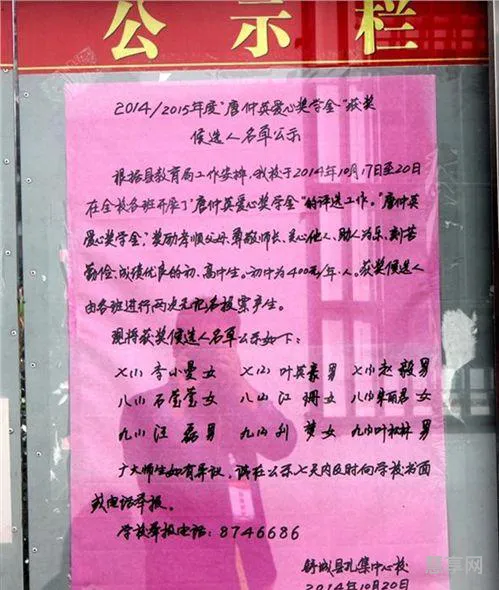 公示栏
2014/2015年度"唐仲英爱心奖学金"获奖
候选人名单公示
根据县教育局工作安排,我校于2014年10月17日至20日
在全校各班开展了"唐仲英爱心奖学金"的评选工作。"唐仲英
爱心奖学金"奖励孝顺父母、尊敬师长、关心他人、助人为乐、刻苦
勤俭、成绩优良的初、高中生。初中为400元/年.人。获奖候选人
由各班进行两次无记名投票产生。
现将获奖候选人名单公示如下:
七(1) 李小曼 女 七(2) 叶英豪 男 七(3) 赵毅 男
八(1) 石莹莹 女 八(2) 江珊 女 八(3) 朱丽君 女
九(1) 汪磊 男 九(2) 刘梦 女 九(3) 叶松林 男
广大师生如有异议,请在公示七天内及时向学校书面
或电话举报。
学校举报电话:8746686
舒城县孔集中心校
2014年10月20日
慧享网